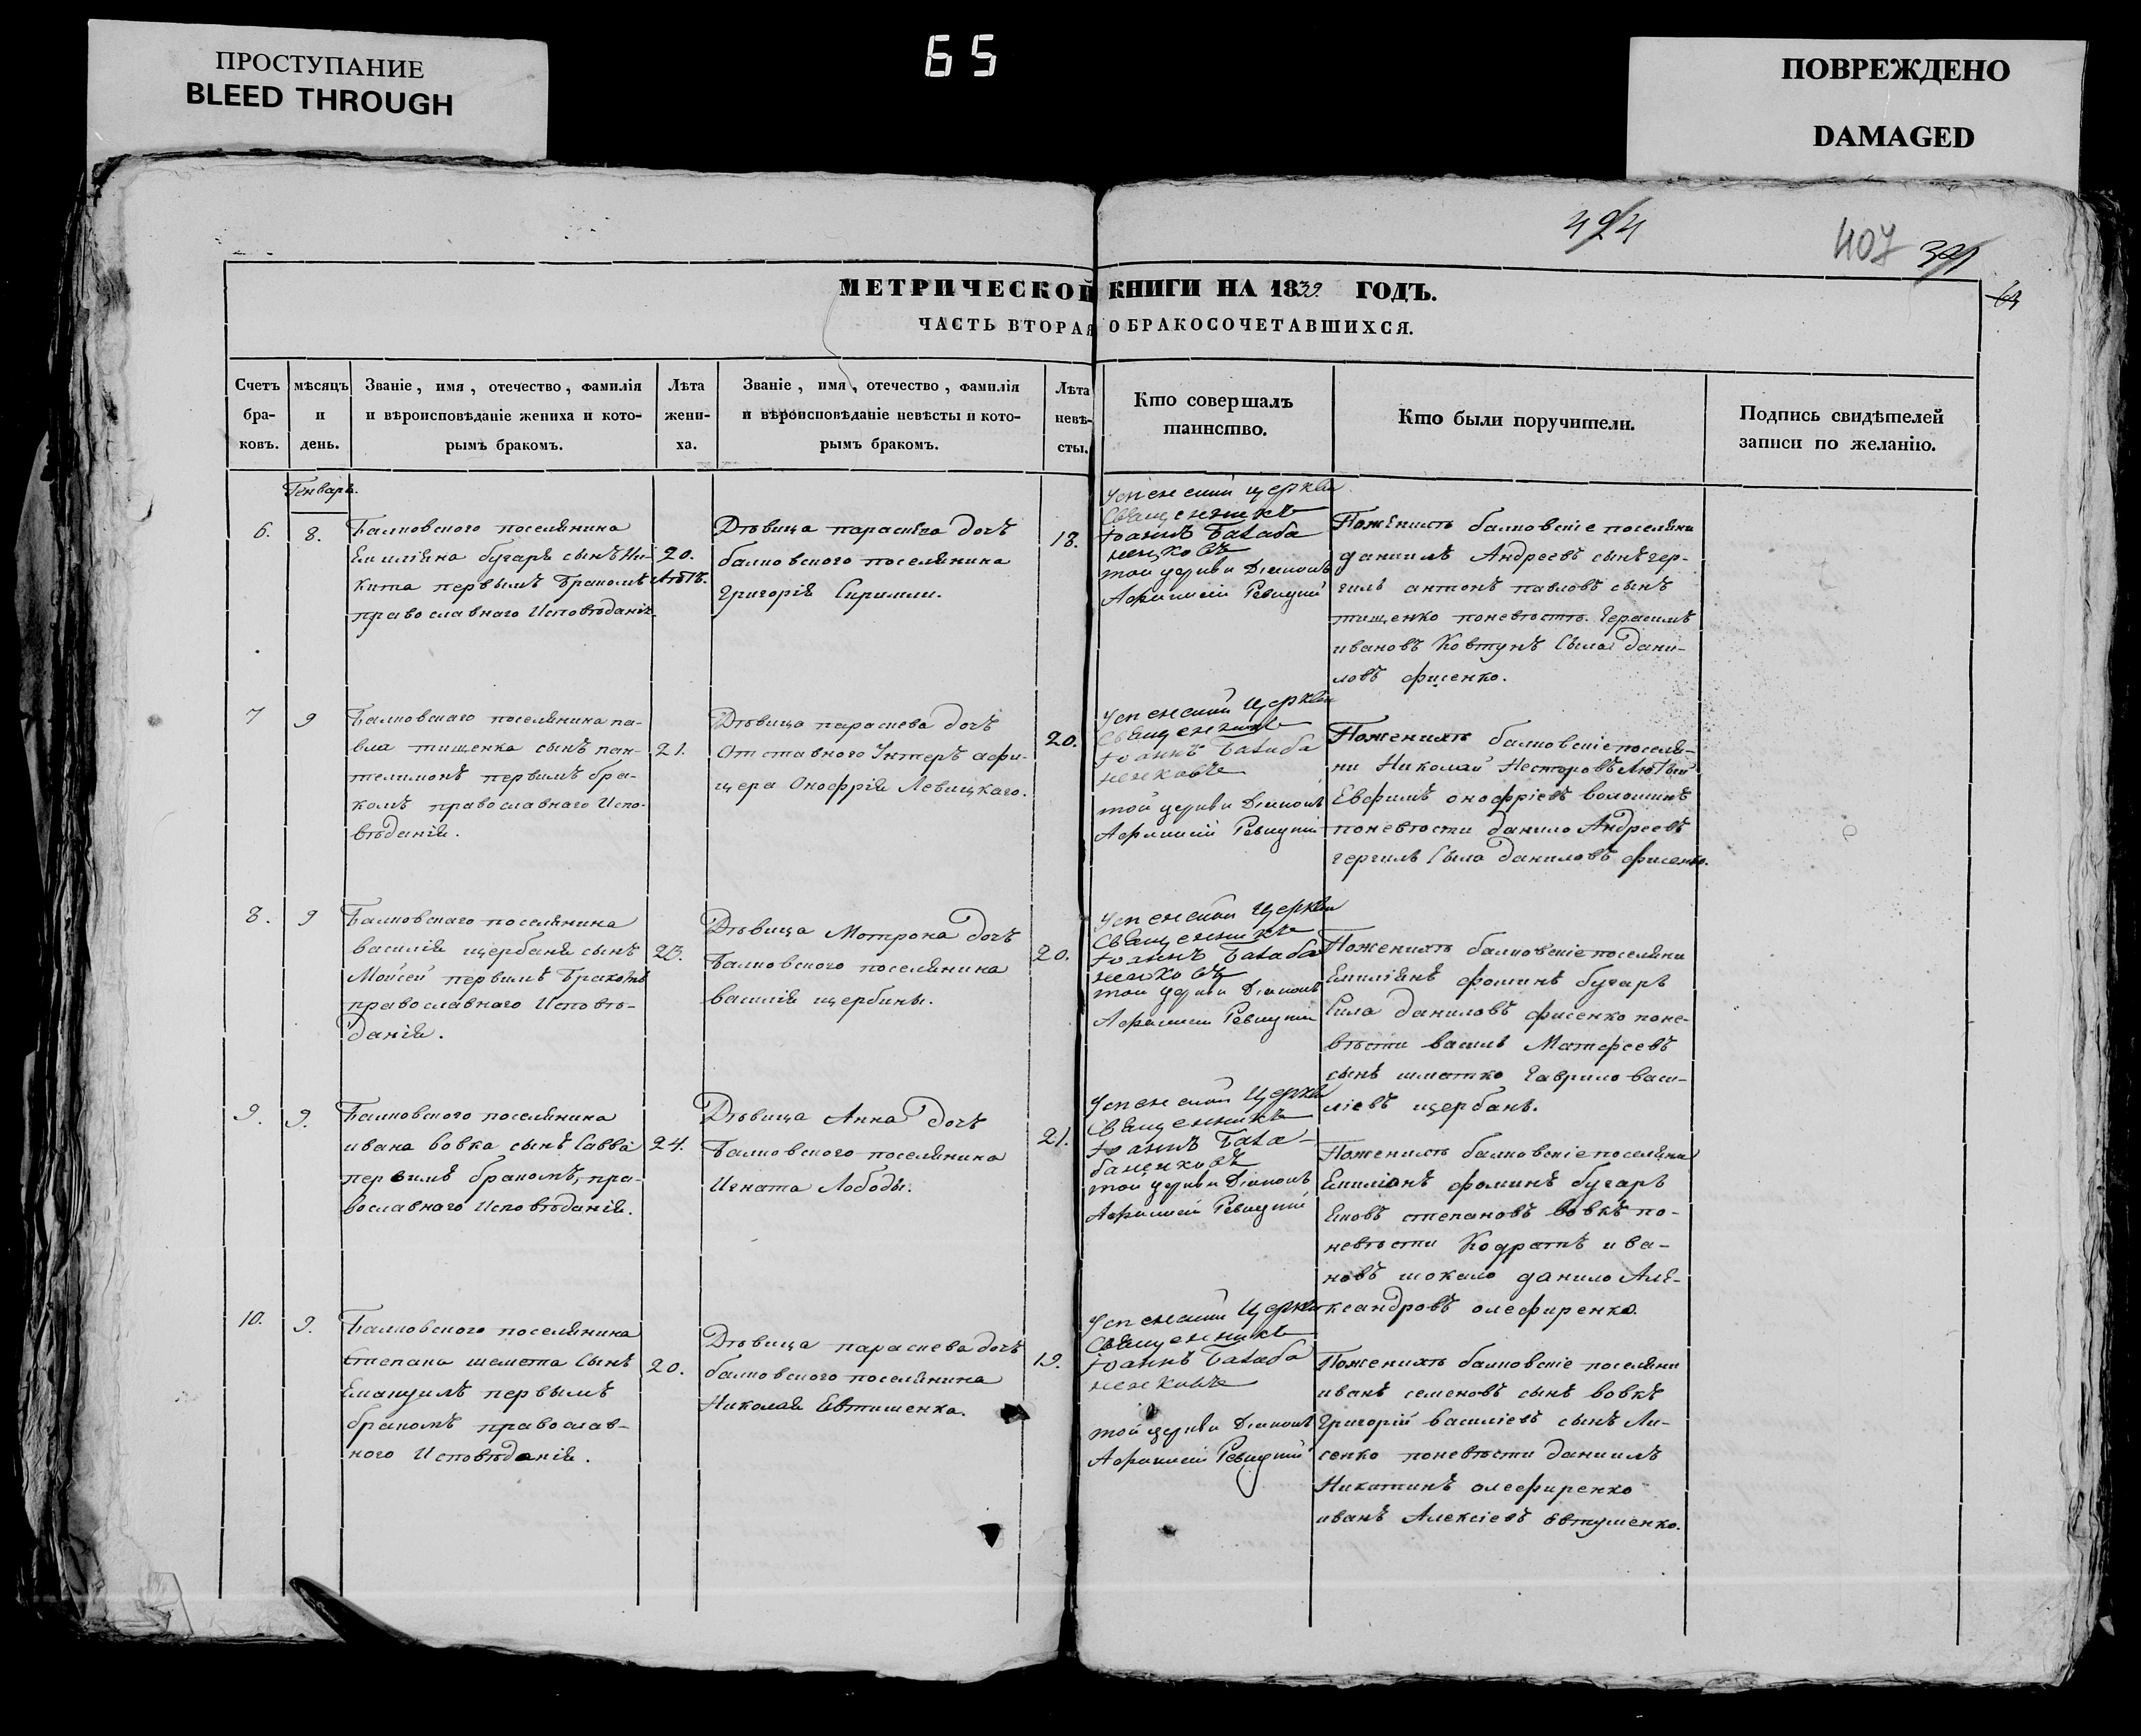 ПРОСТУПАНИЕ
BLEED THROUGH
65
ПОВРЕЖДЕНО
DAMAGED
424
407
МЕТРИЧЕСКОЙ КНИГИ НА 1839. ГОДЪ.
ЧАСТЬ ВТОРАЯ О БРАКОСОЧЕТАВШИХСЯ.
Счетъ бра-ковъ.
мѣсяцъ и день.
Званіе, имя, отечество, фамилія
и вѣроисповѣданіе жениха и кото-
рымъ бракомъ.
Лѣта жени-ха.
Званіе, имя, отечество, фамилія
и вѣроисповѣданіе невѣсты и кото-
рымъ бракомъ.
Лѣта невѣ-сты.
Кто совершалъ
таинство.
Кто были поручители.
Подпись свидѣтелей
записи по желанію.
Генварь.
6.
8.
Балковского поселянина
Емиліяна бугаря сынъ Ни-
кита первымъ бракомъ
православнаго Исповѣданія.
20.
лѣтъ.
Дѣвица параскева дочъ
балковского поселянина
Григорія
18.
Успенской церкви
Священникъ
Іоаннъ Балаба
ненковъ
той церкви Диаконъ
Афанасій Ревицкий
Поженихѣ балковскіе поселяни
даниилъ Андреевъ сынъ гер-
гилъ антонъ павловъ сынъ
тищенко поневѣстѣ. Герасимъ
ивановъ Ковтунъ Сыла дани-
ловъ фисенко.
7
9
Балковскаго поселянина па-
вла тищенка сынъ пан-
телимонъ первымъ бра-
комъ православнаго Испо-
вѣданія.
21.
Дѣвица параскева дочъ
Отставного Унтеръ афи-
цера Онофрія Левицкаго.
20.
Успенской Церкви
Священникъ
Іоаннъ Балаба
ненковъ
той церкви Диаконъ
Афанасій Ревицкий
Поженихѣ балковскіе поселя-
ни Николай Несторовъ
Евфимъ онофріевъ волошинъ
поневѣсти данило Андреевъ
гергилъ Сыла даниловъ фисенко.
8.
9
Балковскаго поселянина
василія щербаня сынъ
Мойсей первымъ бракомъ
православнаго Исповѣ-
данія.
23.
Дѣвица Мотрона дочъ
балковского поселянина
василія щербины.
20.
Успенской Церкви
Священникъ
Іоаннъ Балаба
ненковъ
той церкви Диаконъ
Афанасій Ревицкий
Поженихѣ балковскіе поселяни
Емиліянъ фоминъ бугаръ
Сила даниловъ фисенко поне-
вѣсти василь Матфеевъ
сынъ шматко Гаврило васи-
ліевъ щербанъ.
9.
9.
Балковского поселянина
ивана вовка сынъ Савва
первимъ бракомъ, пра-
вославного Исповѣданія.
24.
Дѣвица Анна дочъ
балковского поселянина
Игната Лободы.
21.
Успенской Церкви
Священникъ
Іоаннъ Бала-
баненковъ
той церкви Диаконъ
Афанасій Ревицкий
Поженихѣ балковскіе поселяни
Емиліянъ фоминъ бугаръ
Яковъ степановъ вовкъ по-
невѣсти Кодратъ ива-
новъ шокало данило Але-
ксандровъ олефиренко.
10.
9.
Балковского поселянина
Степана шемета Сынъ
Емануилъ первымъ
бракомъ православ-
ного Исповѣданія.
20.
Дѣвица параскева дочъ
балковского поселянина
Николая Евтишенка.
19.
Успенской Церкви
Священникъ
Іоаннъ Балаба
ненковъ
той церкви Диаконъ
Афанасій Ревицкий
Поженихѣ балковскіе поселяни
иванъ семеновъ сынъ вовкъ
Григорій василіевъ сынъ Ли-
сенко поневѣсти даниилъ
Никитинъ олефиренко
иванъ Алексіевъ Євтушенко.